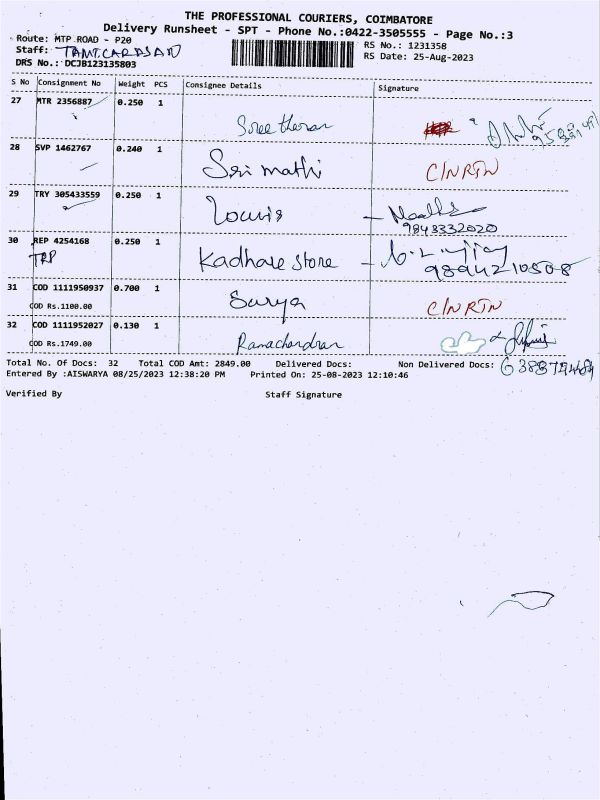 THE PROFESSIONAL COURIERS, COIMBATORE
Delivery Runsheet - SPT - Phone No.:0422-3505555 - Page No.:3
Route: MTP ROAD - P20
RS No.: 1231358
Staff:
RS Date: 25-Aug-2023
DRS No.: DCJB123135803
S No Consignment No Weight PCS Consignee Details Signature
27 MTR 2356887 0.250 1
Sree tharan
28 SVP 1462767 0.240 1
Sri mathi C/N RTN
29 TRY 305433559 0.250 1
Louris
9843332020
30 REP 4254168 0.250 1
TRP
Kadhale store
9894210508
31 COD 1111950937 0.700 1
Surya C/N RTN
COD Rs.1100.00
32 COD 1111952027 0.130 1
COD Rs.1749.00 Ramachandran
Total No. Of Docs: 32 Total COD Amt: 2849.00 Delivered Docs: Non Delivered Docs:
Entered By :AISWARYA 08/25/2023 12:38:20 PM Printed On: 25-08-2023 12:10:46
Verified By Staff Signature